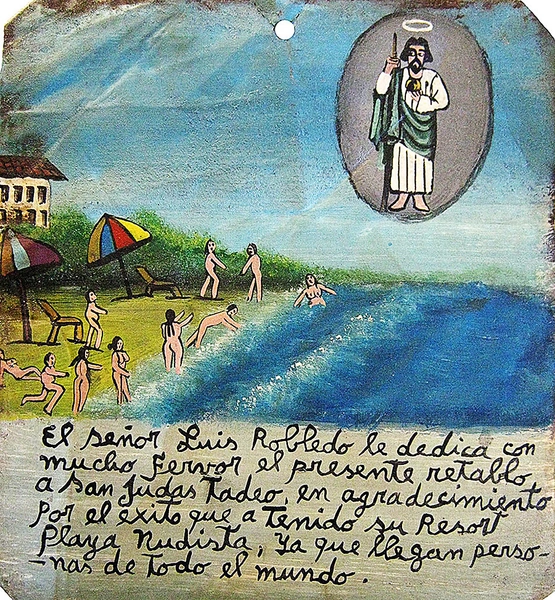 El señor Luis Robledo le dedica con
mucho fervor el presente retablo
a San Judas Tadeo, en agradecimiento
por el éxito que a Tenido su Resort
Playa Nudista, Ya que llegan perso-
-nas de Todo el mundo.